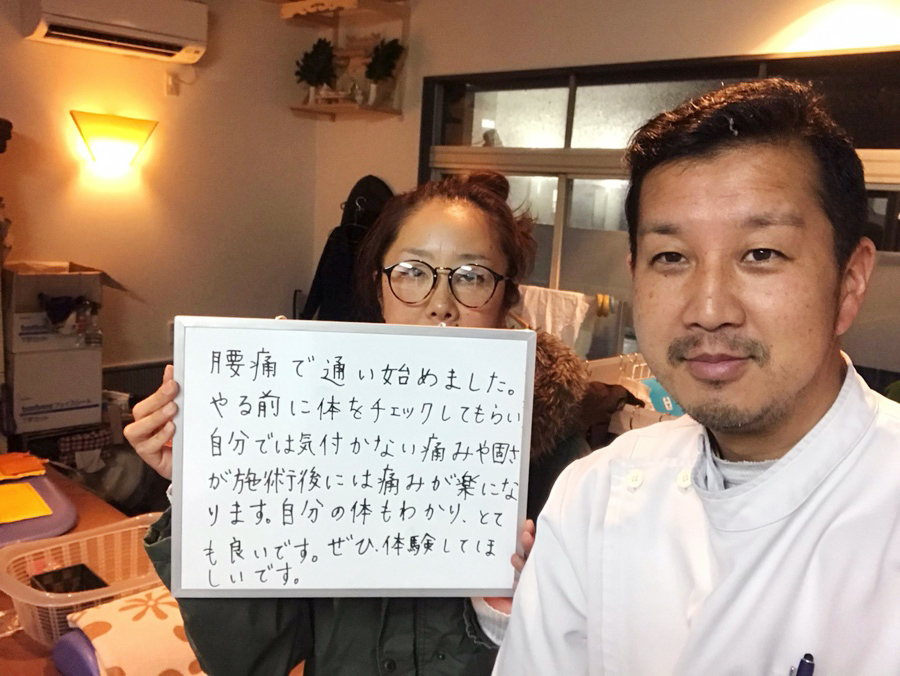 腰痛で通い始めました。
やる前に体をチェックしてもらい
自分では気付かない痛みや固さ
が施術後には痛みが楽にな
ります。自分の体もわかり、とて
も良いです。ぜひ、体験してほ
しいです。